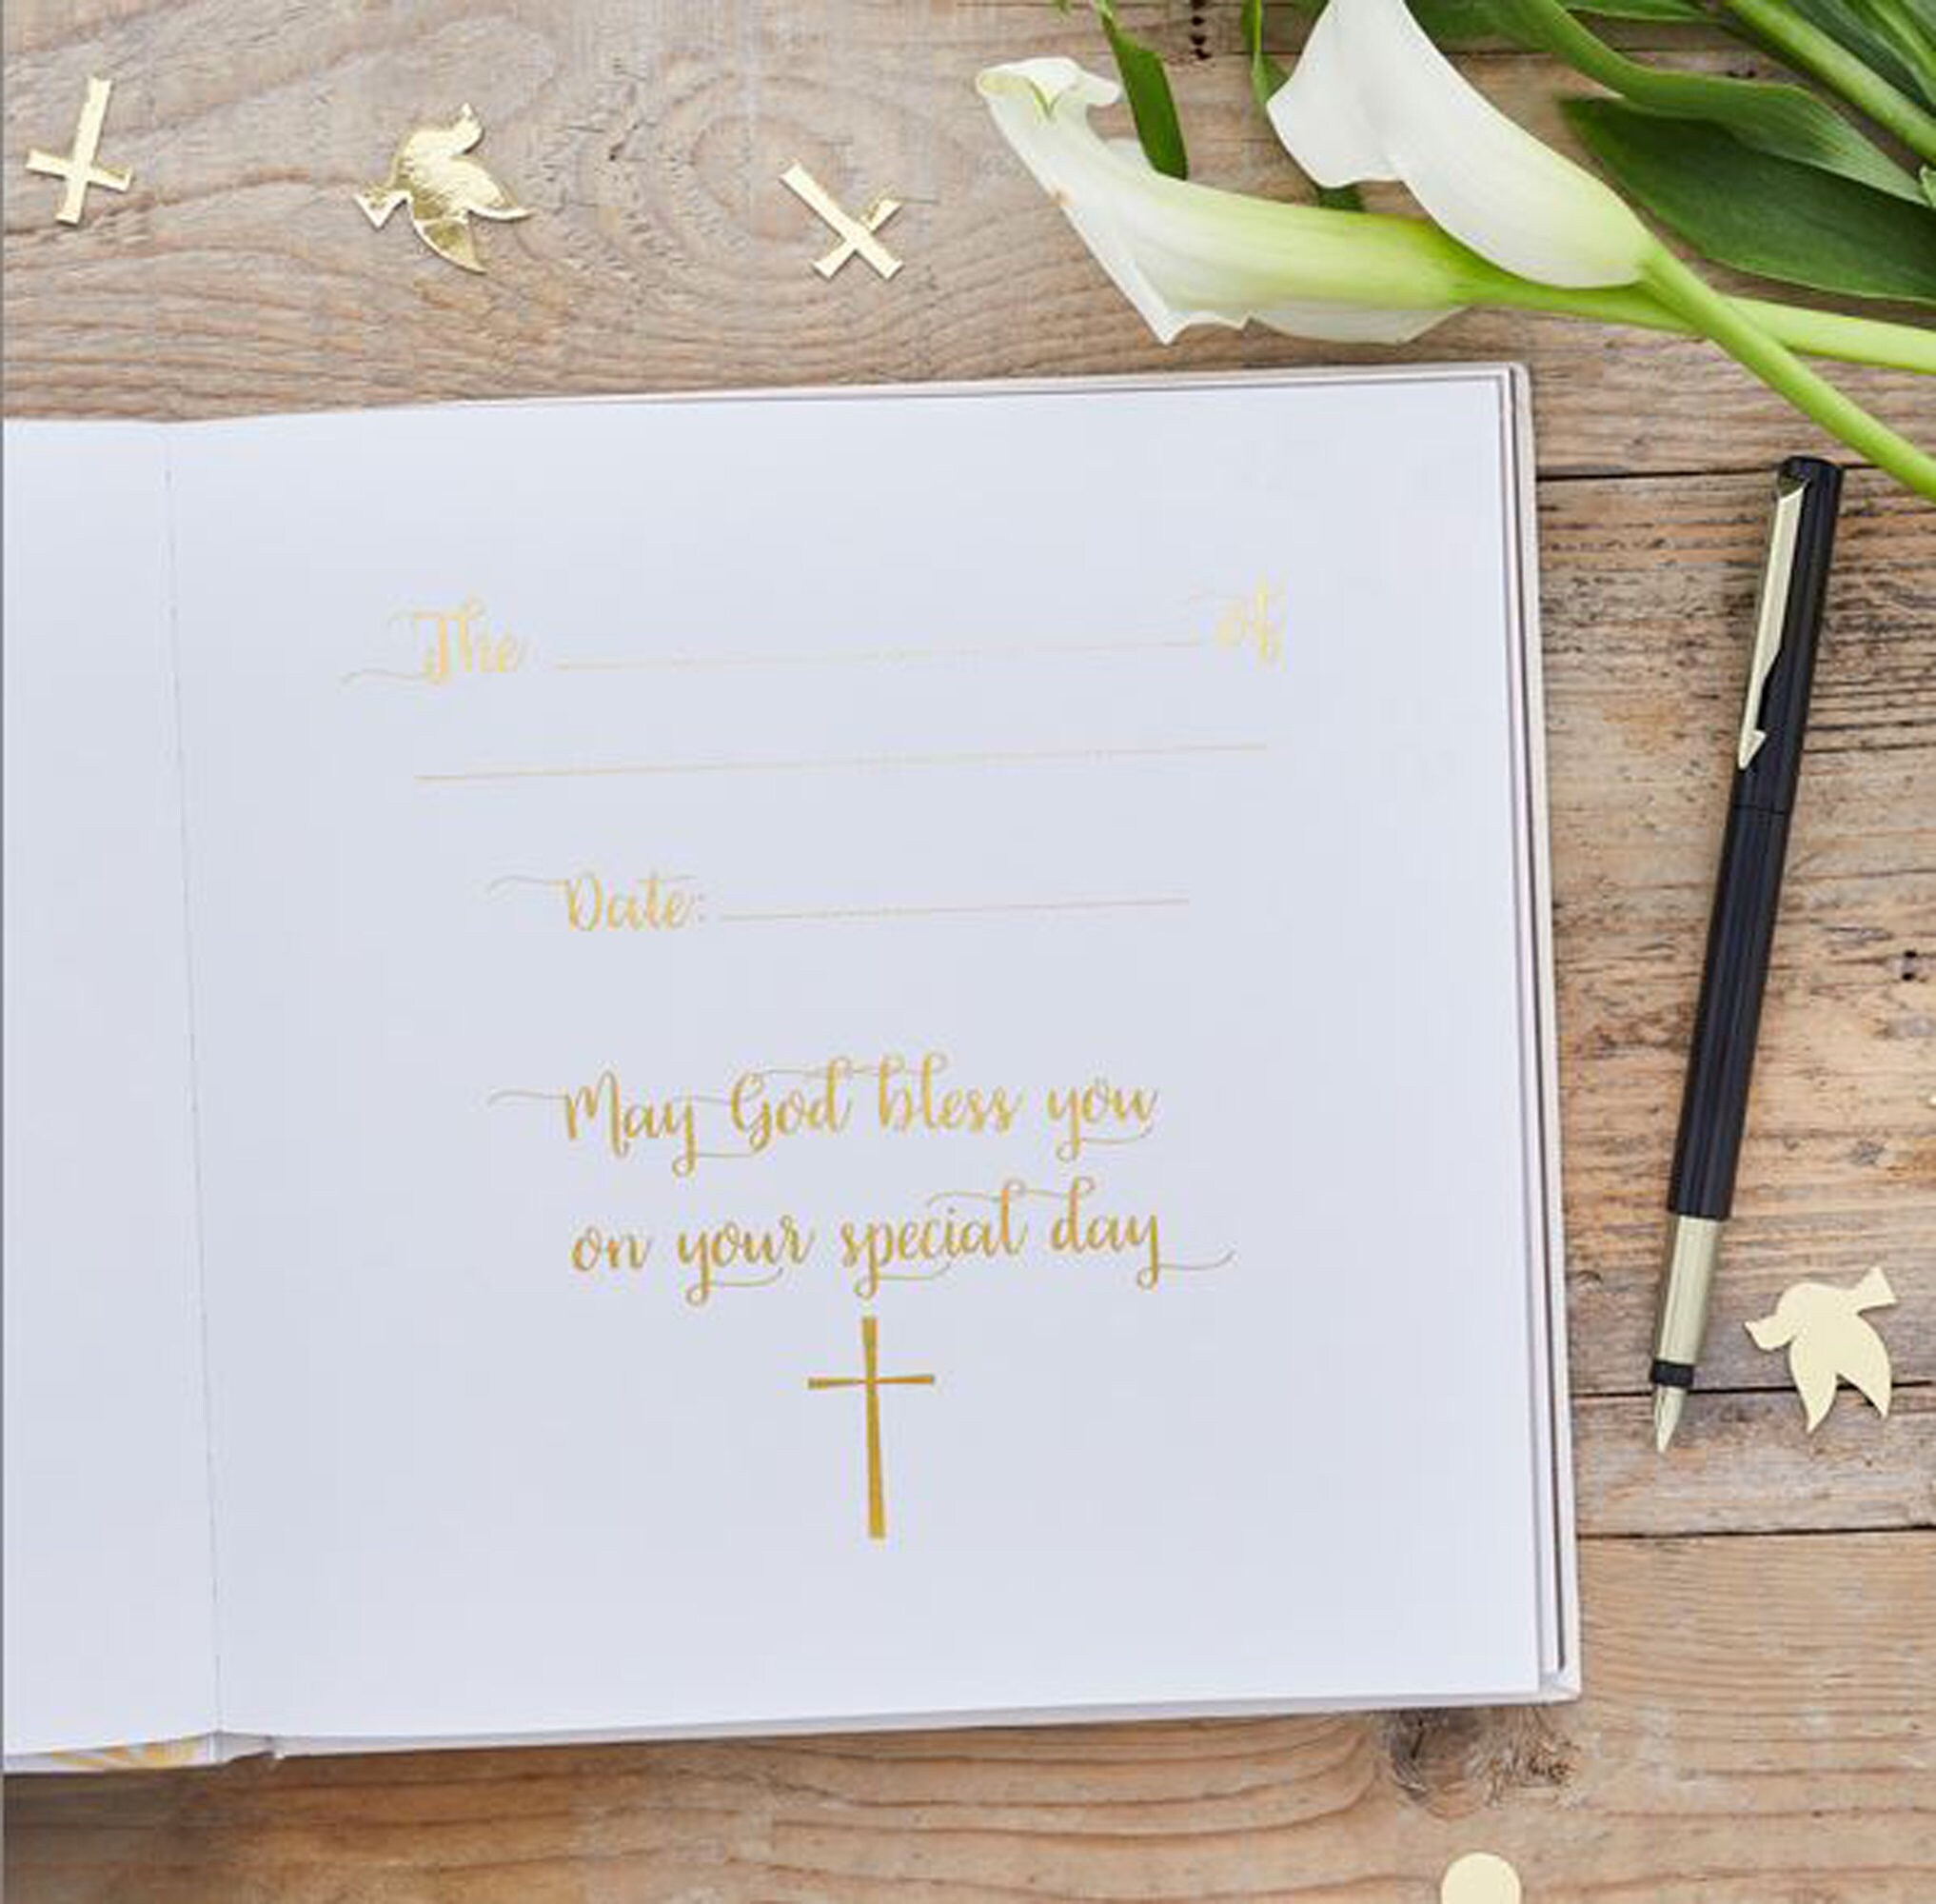 The of
Date:
May God bless you
on your special day